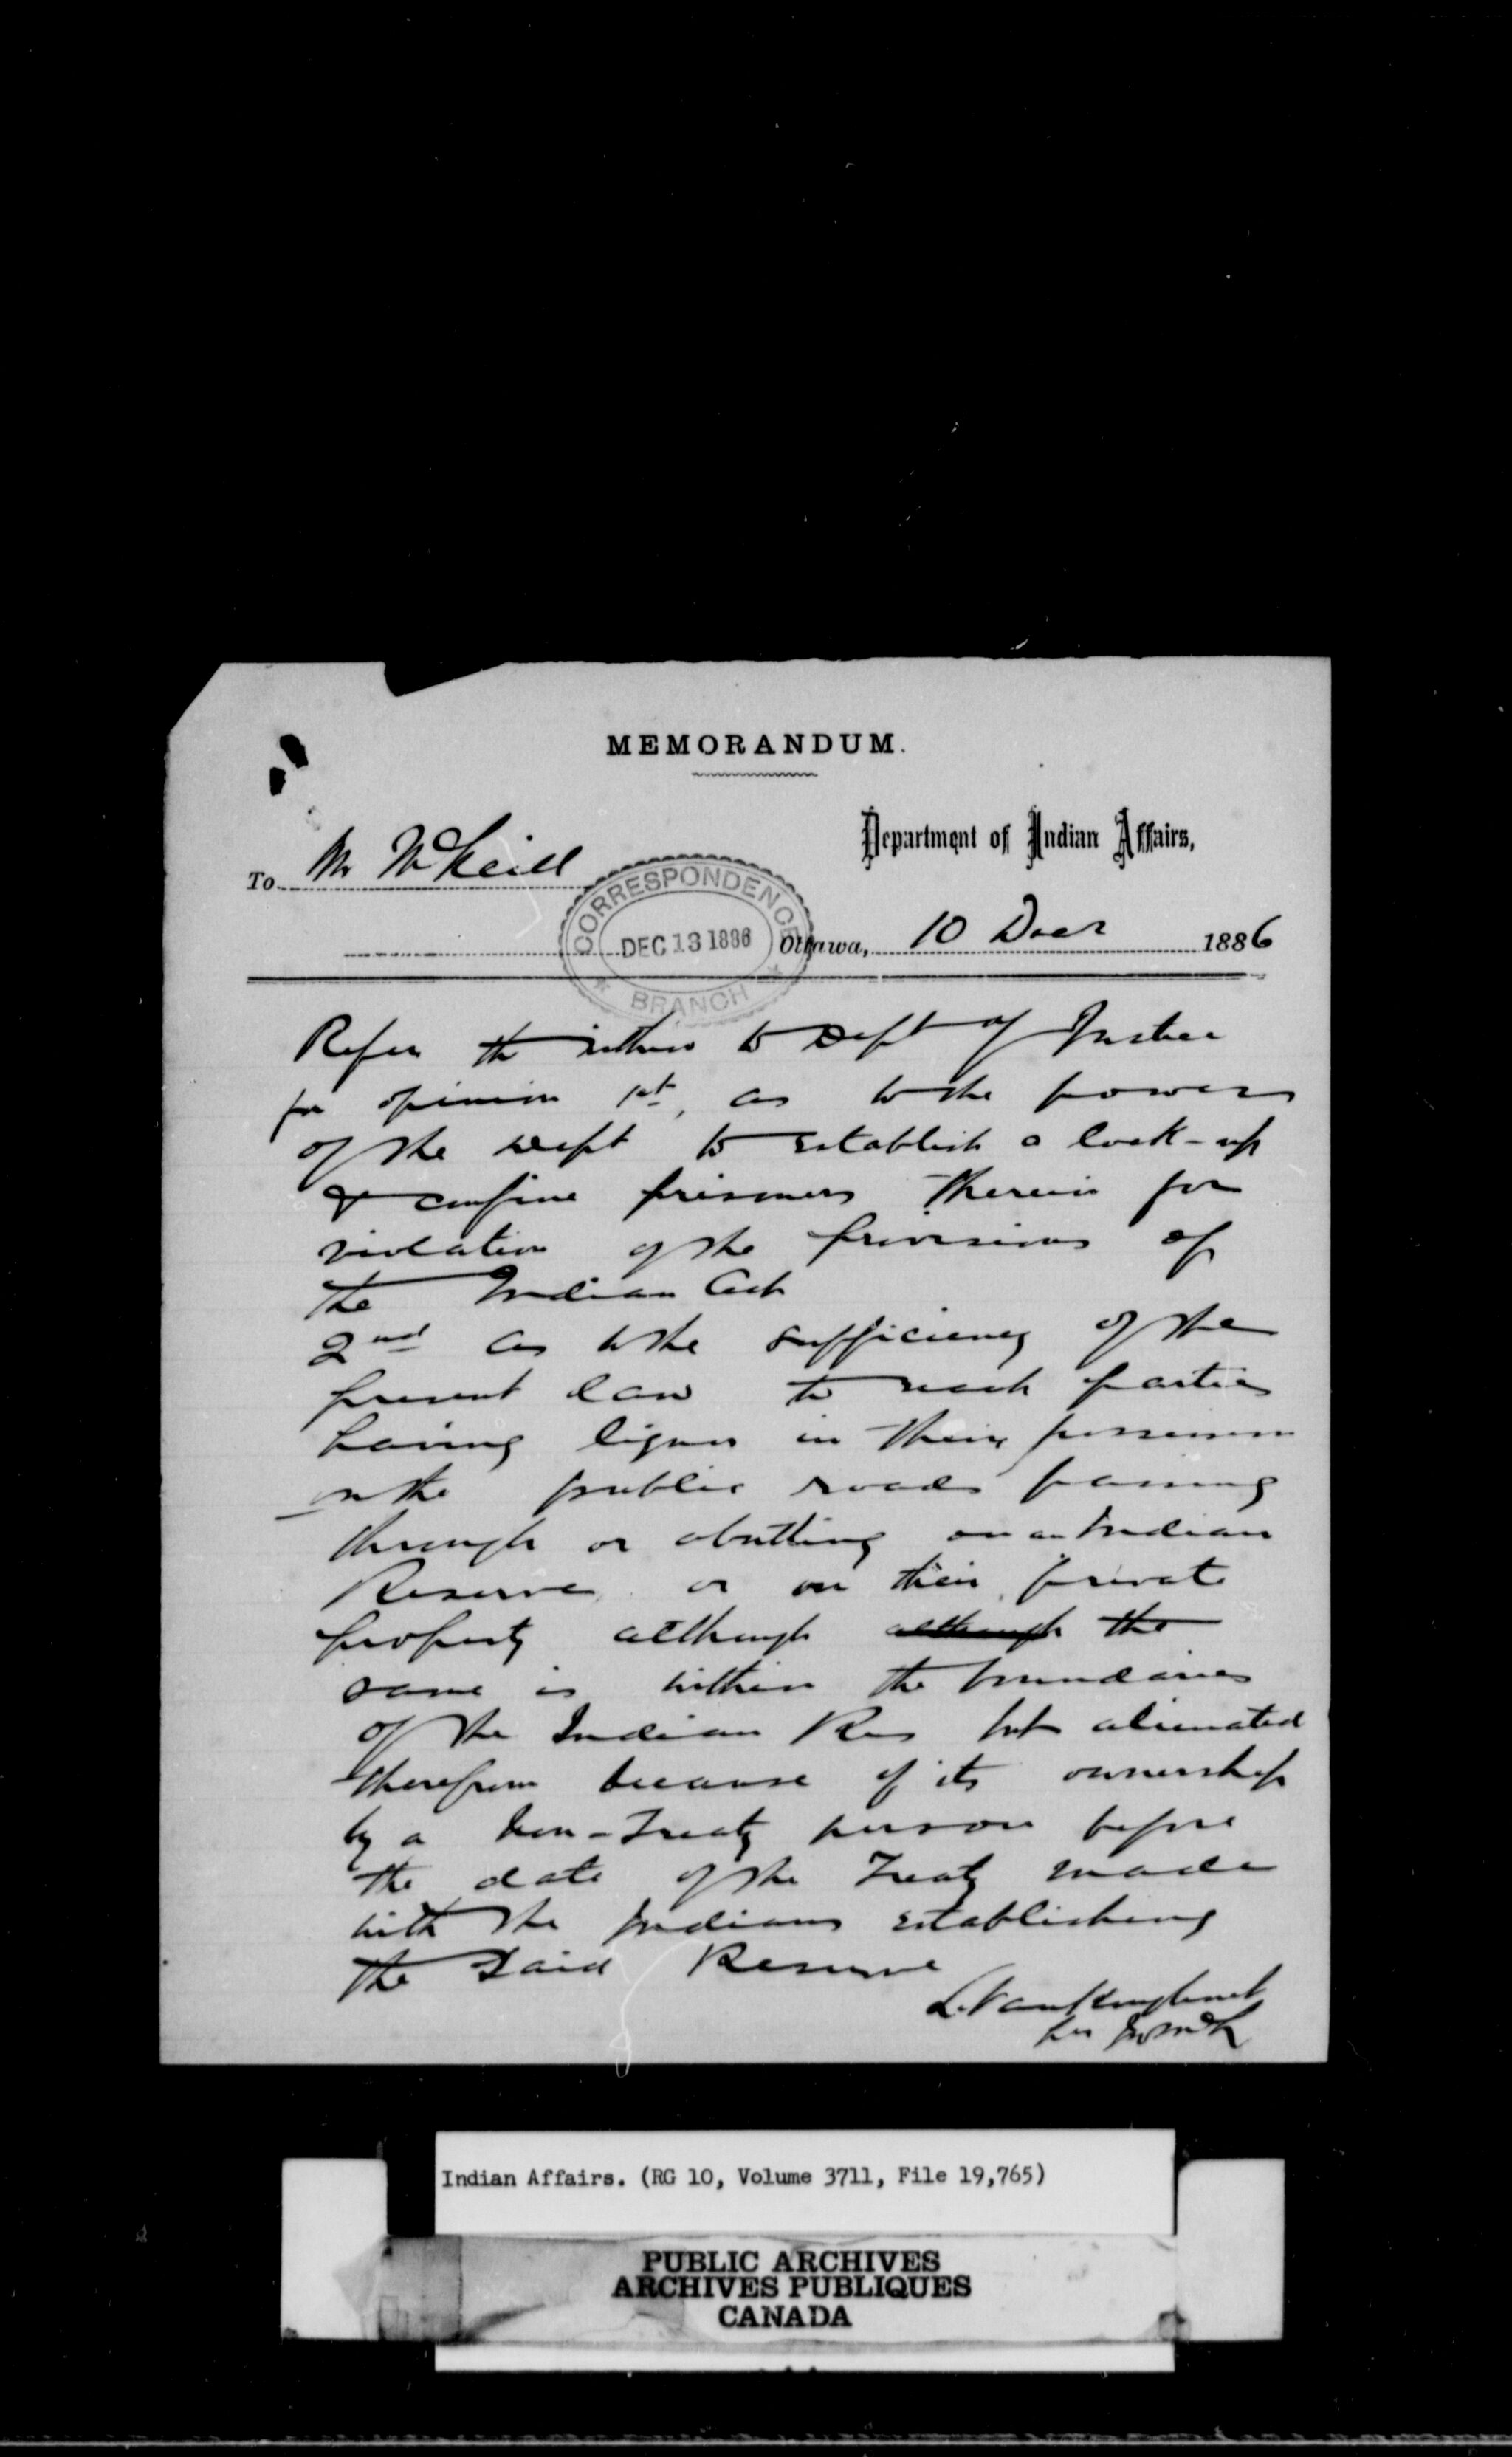 MEMORANDUM.
Department of Indian Affairs,
To Mr McNeill
CORRESPONDENCE
DEC 13 1886
BRANCH
Ottawa, 10 Decr 1886
Refer the within to Dept of Justice
for opinion 1st, as to the powers
of the Dept to establish a lock-up
& confine prisoners therein for
violation of the provisions of
the Indian Act
2nd as to the sufficiency of the
present law to reach parties
having liquor in their possession
on the public roads passing
through or abutting on an Indian
Reserve or on their private
property although although the
same is within the boundaries
of the Indian Res but alienated
therefrom because of its ownership
by a non-Treaty person before
the date of the Treaty made
with the Indians establishing
the said Reserve
L. Vankoughnet
per
Indian Affairs. (RG 10, Volume 3711, File 19,765)
PUBLIC ARCHIVES
ARCHIVES PUBLIQUES
CANADA